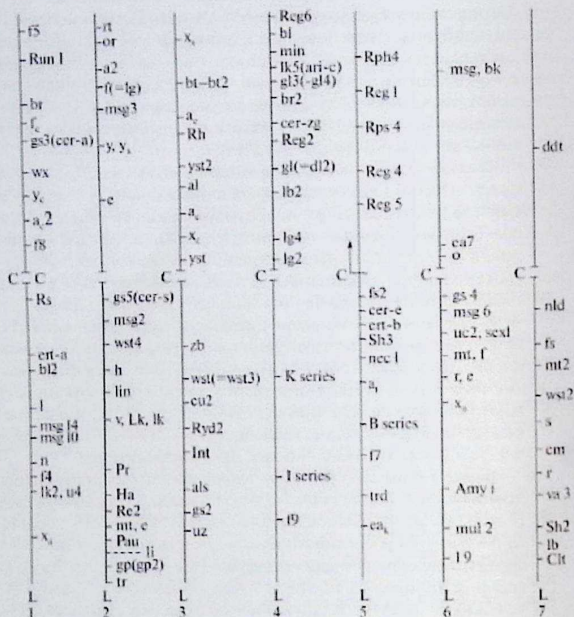 f5
Run 1
br
f_c
gs3(cer-a)
wx
y_c
a_c2
f8
C C
Rs
ert-a
bl2
l
msg l4
msg l0
n
f4
lk2, u4
L
1
rt
or
a2
f(=lg)
msg3
y, y_s
e
gs5(cer-s)
msg2
wst4
h
lin
v, Lk, lk
Pr
Ha
Re2
mt, e
Pau
li
gp(gp2)
tr
L
2
bt–bt2
a_e
Rh
yst2
al
yst
C
zb
wst(=wst3)
cu2
Ryd2
Int
als
gs2
uz
L
3
Reg6
bl
min
lk5(ari-c)
gl3(-gl4)
br2
cer-zg
Reg2
gl(=dl2)
lb2
lg4
lg2
C
K series
I series
f9
L
4
Rph4
Reg 1
Rps 4
Reg 4
Reg 5
C
fs2
cer-e
ert-b
Sh3
nec 1
B series
f7
trd
L
5
msg, bk
ea7
o
C
gs 4
msg 6
uc2, scxl
mt, f
r, e
Amy i
mul 2
L
6
ddt
C
nld
fs
mt2
wst2
s
cm
r
va 3
Sh2
lb
Clt
L
7